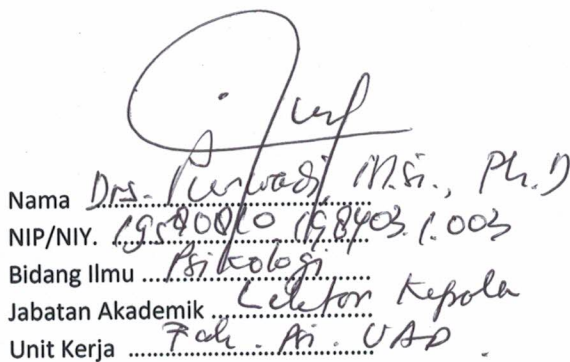 Nama Drs. Purwadi, M.Si., Ph.D
NIP/NIY. 198403.1.003
Bidang Ilmu Psikologi
Jabatan Akademik Lektor Kepala
Unit Kerja Fak. Psi. UAD.